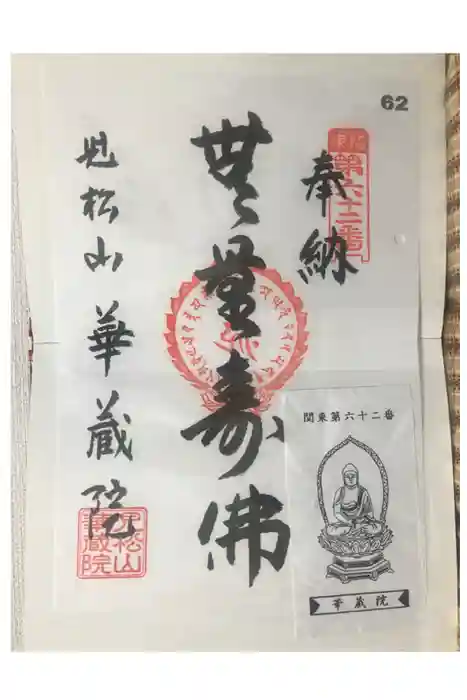 62
奉納
第六十二番
無量壽佛
児松山 華蔵院
児松山
華蔵院
関東第六十二番
華蔵院